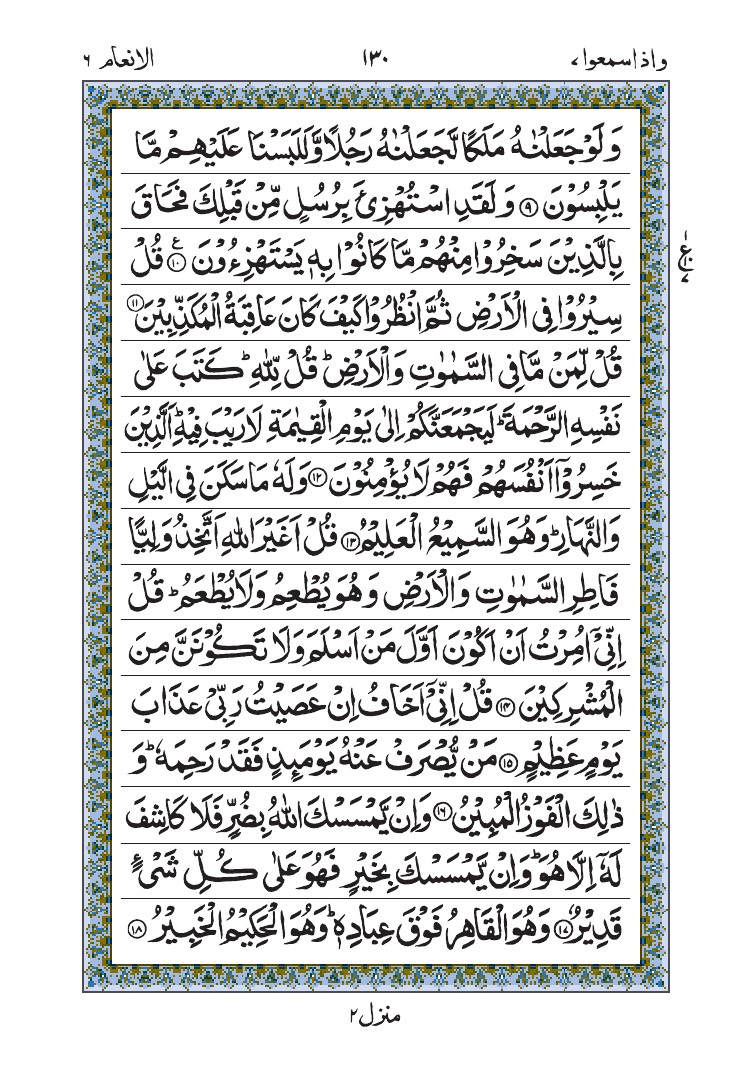 واذاسمعوا ٧ ١٣٠ الانعام ٦
وَلَوْ جَعَلْنٰهُ مَلَكًا لَّجَعَلْنٰهُ رَجُلًا وَّلَلَبَسْنَا عَلَيْهِمْ مَّا
يَلْبِسُوْنَ ﴿٩﴾ وَلَقَدِ اسْتُهْزِئَ بِرُسُلٍ مِّنْ قَبْلِكَ فَحَاقَ
بِالَّذِيْنَ سَخِرُوْا مِنْهُمْ مَّا كَانُوْا بِهٖ يَسْتَهْزِءُوْنَ ﴿١٠﴾ ع قُلْ
سِيْرُوْا فِى الْاَرْضِ ثُمَّ انْظُرُوْا كَيْفَ كَانَ عَاقِبَةُ الْمُكَذِّبِيْنَ ﴿١١﴾
قُلْ لِّمَنْ مَّا فِى السَّمٰوٰتِ وَالْاَرْضِ ؕ قُلْ لِّلّٰهِ ؕ كَتَبَ عَلٰى
نَفْسِهِ الرَّحْمَةَ ؕ لَيَجْمَعَنَّكُمْ اِلٰى يَوْمِ الْقِيٰمَةِ لَا رَيْبَ فِيْهِ ؕ اَلَّذِيْنَ
خَسِرُوْۤا اَنْفُسَهُمْ فَهُمْ لَا يُؤْمِنُوْنَ ﴿١٢﴾ وَلَهٗ مَا سَكَنَ فِى الَّيْلِ
وَالنَّهَارِ ؕ وَهُوَ السَّمِيْعُ الْعَلِيْمُ ﴿١٣﴾ قُلْ اَغَيْرَ اللّٰهِ اَتَّخِذُ وَلِيًّا
فَاطِرِ السَّمٰوٰتِ وَالْاَرْضِ وَهُوَ يُطْعِمُ وَلَا يُطْعَمُ ؕ قُلْ
اِنِّىْۤ اُمِرْتُ اَنْ اَكُوْنَ اَوَّلَ مَنْ اَسْلَمَ وَلَا تَكُوْنَنَّ مِنَ
الْمُشْرِكِيْنَ ﴿١٤﴾ قُلْ اِنِّىْۤ اَخَافُ اِنْ عَصَيْتُ رَبِّىْ عَذَابَ
يَوْمٍ عَظِيْمٍ ﴿١٥﴾ مَنْ يُّصْرَفْ عَنْهُ يَوْمَئِذٍ فَقَدْ رَحِمَهٗ ؕ وَ
ذٰلِكَ الْفَوْزُ الْمُبِيْنُ ﴿١٦﴾ وَاِنْ يَّمْسَسْكَ اللّٰهُ بِضُرٍّ فَلَا كَاشِفَ
لَهٗۤ اِلَّا هُوَ ؕ وَاِنْ يَّمْسَسْكَ بِخَيْرٍ فَهُوَ عَلٰى كُلِّ شَىْءٍ
قَدِيْرٌ ﴿١٧﴾ وَهُوَ الْقَاهِرُ فَوْقَ عِبَادِهٖ ؕ وَهُوَ الْحَكِيْمُ الْخَبِيْرُ ﴿١٨﴾
منزل ٢